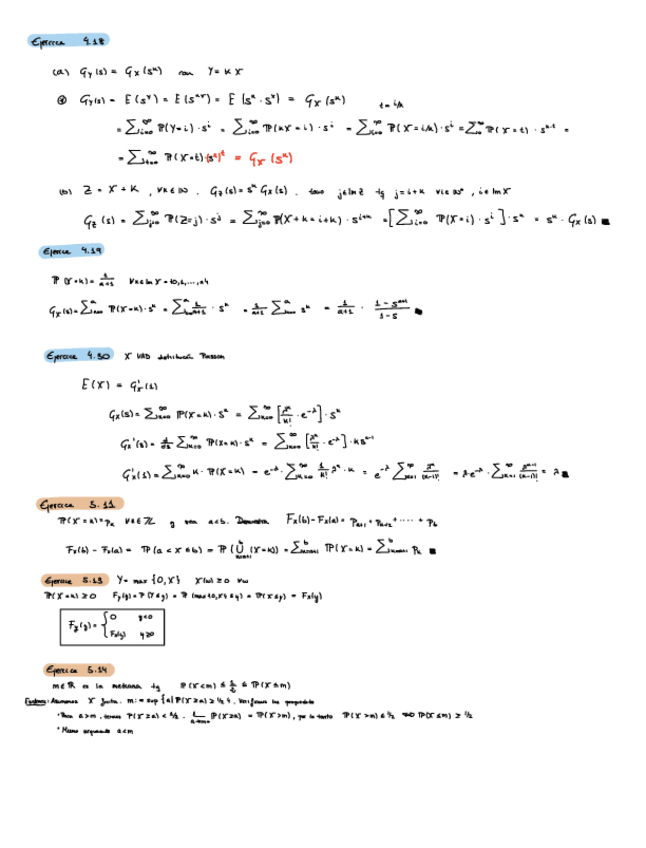 Ejercicio 4.18
(a) G_Y(s) = G_X(s^k) con Y = kX
G_Y(s) = E(s^Y) = E(s^{kX}) = E(s^k · s^X) = G_X(s^k)
t = i/k
= ∑_{i=0}^∞ P(Y=i) · s^i = ∑_{i=0}^∞ P(kX=i) · s^i = ∑_{i=0}^∞ P(X=i/k) · s^i = ∑_{t=0}^∞ P(X=t) · s^{k·t} =
= ∑_{t=0}^∞ P(X=t)·(s^k)^t = G_X(s^k)
(b) Z = X + K, ∀k∈ℕ. G_Z(s) = s^k G_X(s). j∈Im Z tq j = i+k, i∈Im X
G_Z(s) = ∑_{j=0}^∞ P(Z=j) · s^j = ∑_{j=0}^∞ P(X+k=i+k) · s^{i+k} = [∑_{i=0}^∞ P(X=i) · s^i] · s^k = s^k · G_X(s) ■
Ejercicio 4.19
P(X=k) = 1/(a+1) ∀k∈Im X = {0,1,...,a}
G_X(s) = ∑_{k=0}^a P(X=k) · s^k = ∑_{k=0}^a 1/(a+1) · s^k = 1/(a+1) ∑_{k=0}^a s^k = 1/(a+1) · (1-s^{a+1})/(1-s) ■
Ejercicio 4.30 X VAD distribución Poisson
E(X) = G'_X(1)
G_X(s) = ∑_{k=0}^∞ P(X=k) · s^k = ∑_{k=0}^∞ [λ^k/k! · e^{-λ}] · s^k
G_X'(s) = d/ds ∑_{k=0}^∞ P(X=k) · s^k = ∑_{k=0}^∞ [λ^k/k! · e^{-λ}] · k s^{k-1}
G'_X(1) = ∑_{k=0}^∞ k · P(X=k) = e^{-λ} · ∑_{k=0}^∞ 1/k! λ^k · k = e^{-λ} ∑_{k=1}^∞ λ^k/(k-1)! = λ e^{-λ} · ∑_{k=1}^∞ λ^{k-1}/(k-1)! = λ ■
Ejercicio 5.11
P(X=k) = p_k ∀k∈ℤ y sea a<b. Demuestra F_X(b) - F_X(a) = p_{a+1} + p_{a+2} + ···· + p_b
F_X(b) - F_X(a) = P(a < X ≤ b) = P(∪_{k=a+1}^b (X=k)) = ∑_{k=a+1}^b P(X=k) = ∑_{k=a+1}^b p_k ■
Ejercicio 5.13 Y = max {0,X} X(ω) ≥ 0 ∀ω
P(X=k) ≥ 0 F_Y(y) = P(Y≤y) = P(max{0,X} ≤ y) = P(X≤y) = F_X(y)
F_Y(y) = { 0 y<0
F_X(y) y≥0
Ejercicio 5.14
m∈ℝ es la mediana tq P(X<m) ≤ 1/2 ≤ P(X≤m)
Existencia: Asumamos X m := sup {a | P(X≥a) ≥ 1/2}. Verifiquemos las propiedades
· Para a>m, tenemos P(X≥a) < 1/2. P(X≥a) = P(X>m), por lo tanto P(X>m) ≤ 1/2 ⇒ P(X≤m) ≥ 1/2
· Mismo argumento a<m